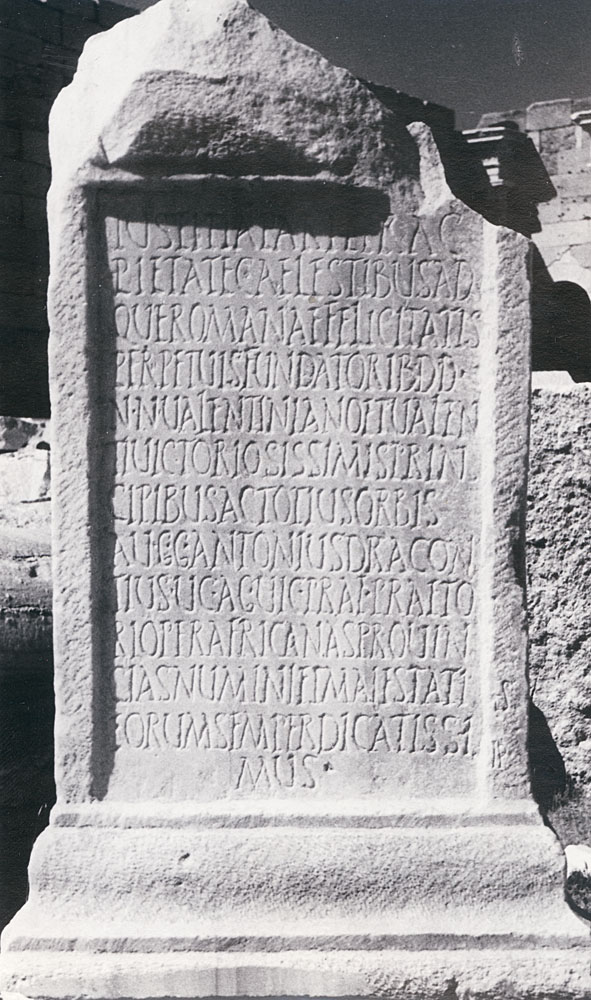 IUSTITIA PARITER AC
PIETATE CAELESTIBUS AD
QUE ROMANAE FELICITATIS
PERPETUIS FUNDATORIB DD·
N·N UALENTINIANO ET UALEN
TI UICTORIOSISSIMIS PRIN
CIPIBUS AC TOTIUS ORBIS
AUGG ANTONIUS DRACON
TIUS·U C AG UIC PRAEF PRAETO
RIO PER AFRICANAS PROUIN
CIAS NUMINI ET MAIESTATI
EORUM SEMPER DICATISSI
MUS